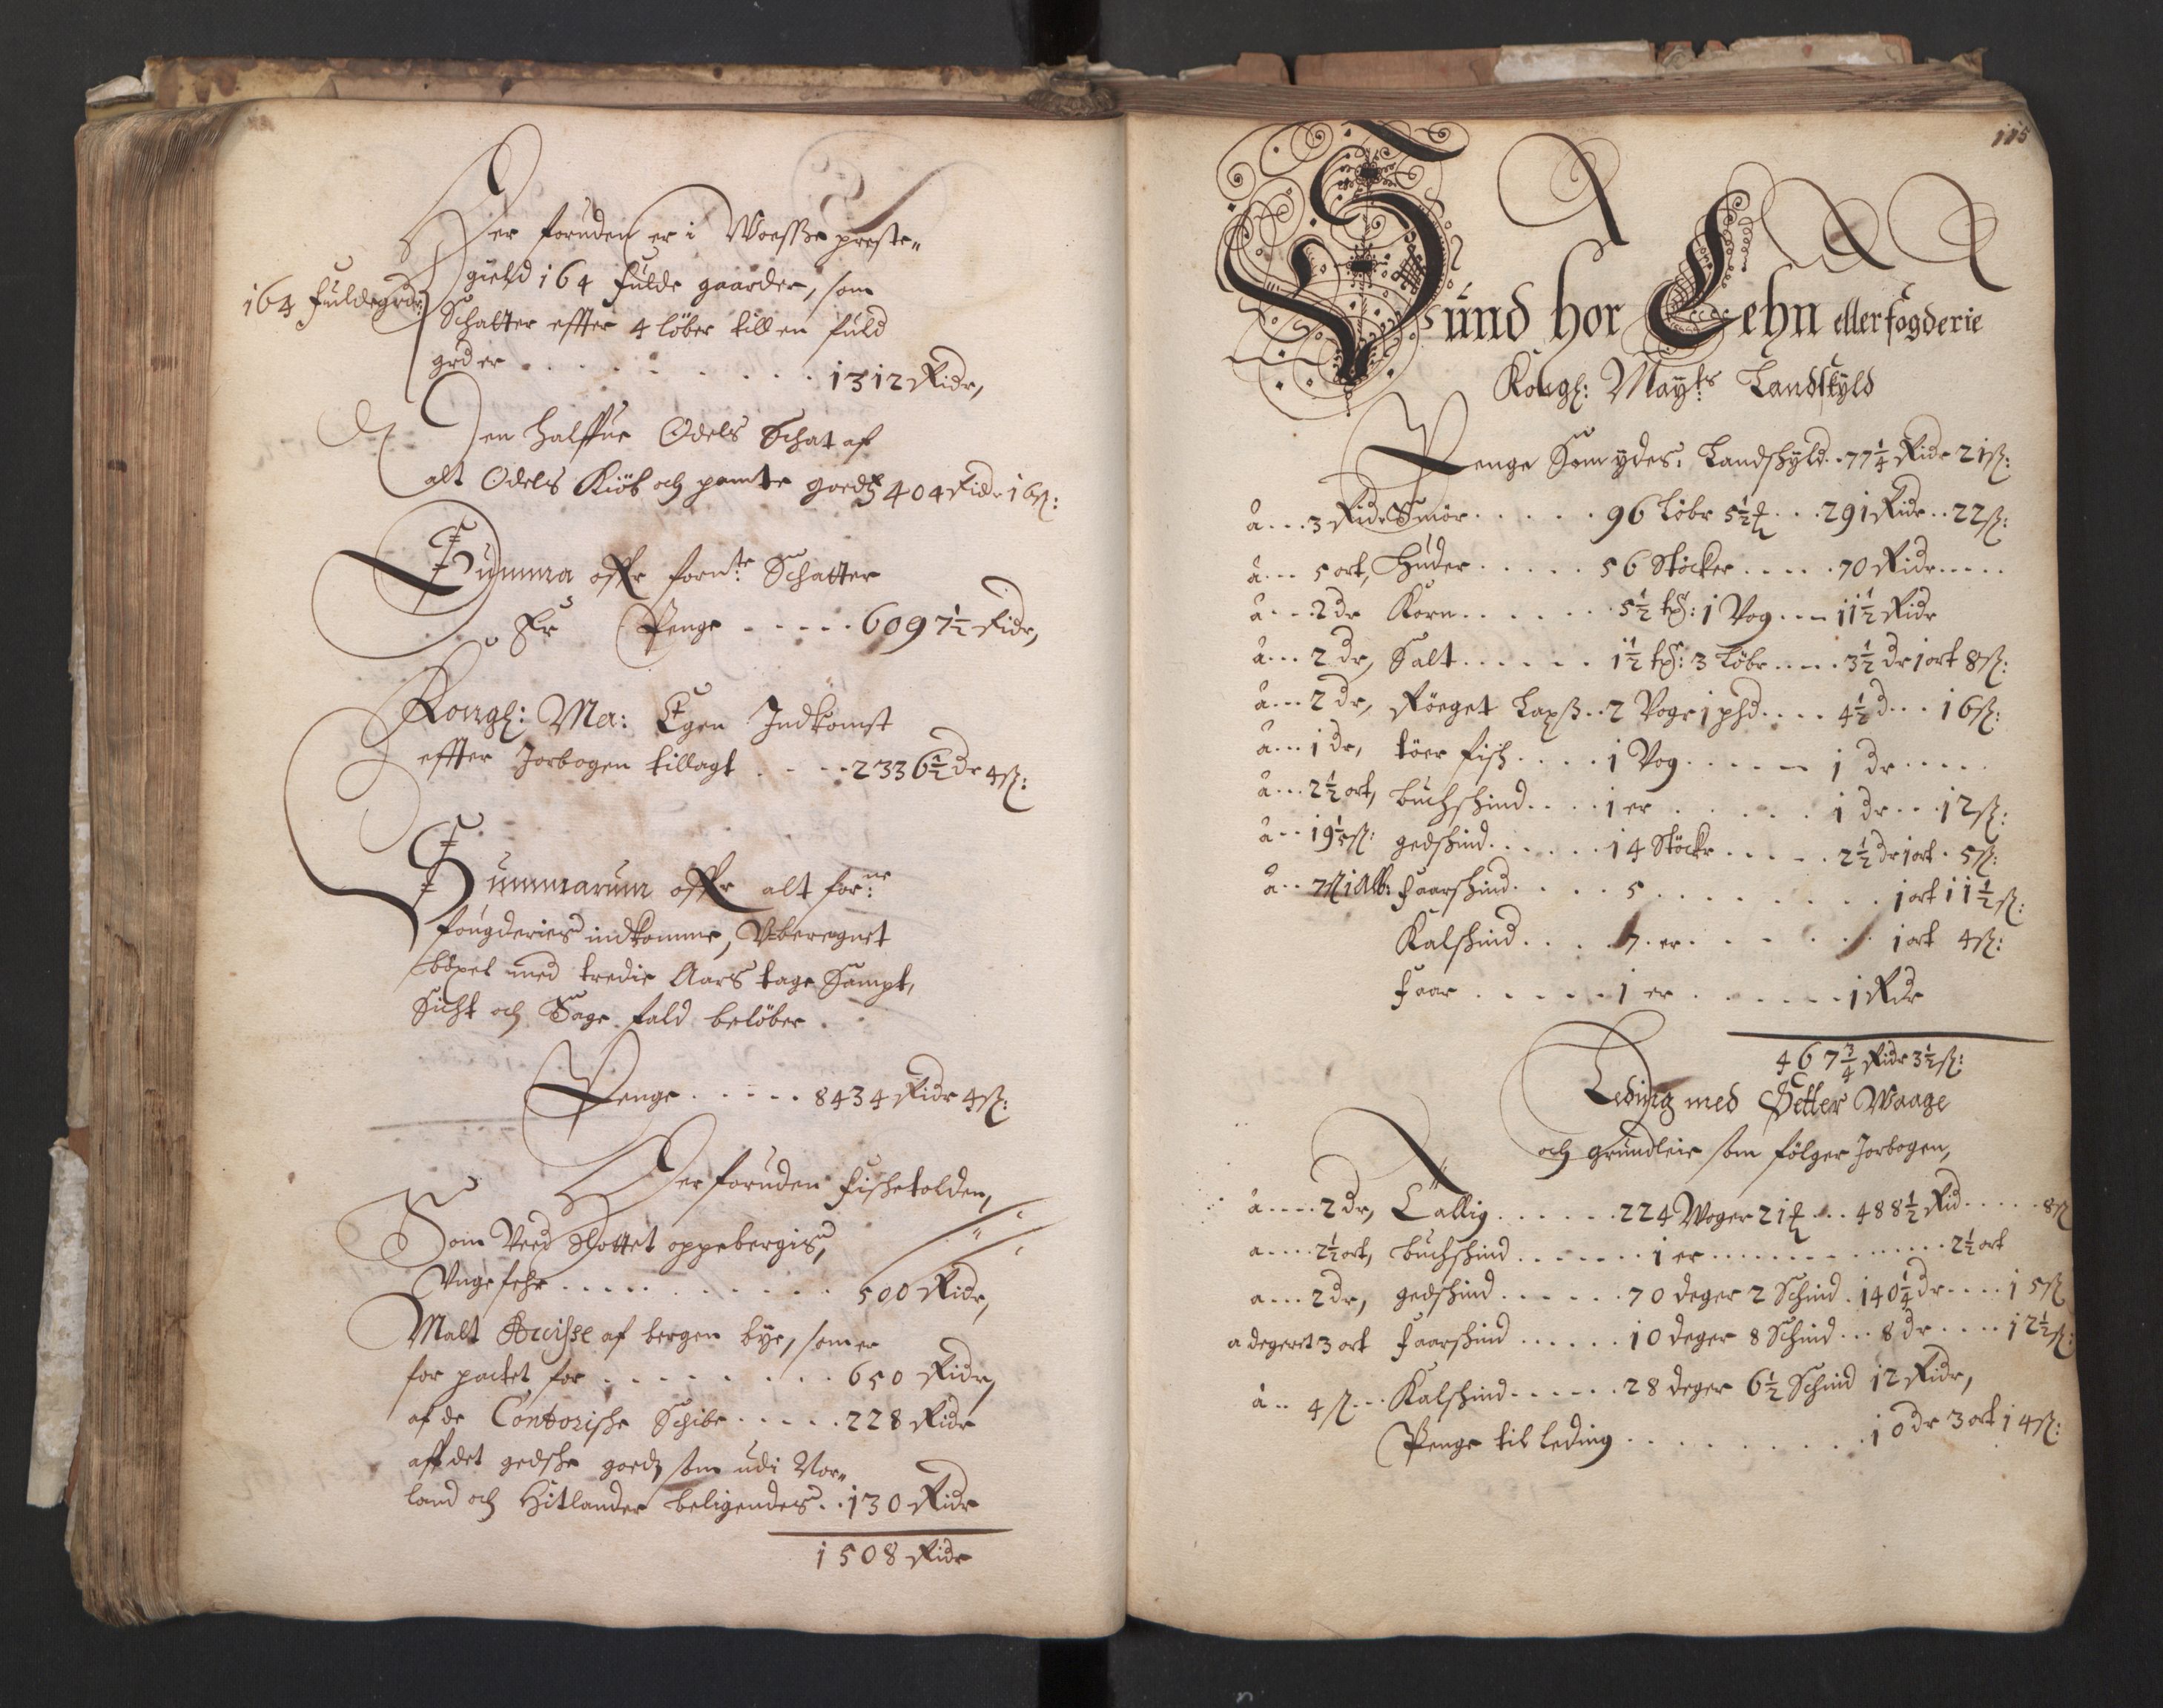 Her foruden er i Woesse preste„
gield 164 fulde gaarder, som
164 fulde grdr:
Schatter effter 4 löber till en fuld
grd er . . . . . . . . 1312 Ridr,
Den halffue Odels Schat af
alt Odels Kiöb och pante goedtz 404 Ridr 16 ß:
Summa offr forn:te Schatter
Er Penge . . . . . 6097½ Ridr,
Kongl: Ma: Egen Indkomst
effter Jorbogen tillagt . . . . 2336½ dr 4 ß:
Summarum offr alt for:ne
fougderies indkomme, Vberegnet
böxel med tredie Aars tage Sampt,
Sicht och Sage fald belöber .
Penge . . . . . 8434 Ridr 4 ß:
Her foruden fischetolden,
Som Ved Slottet oppebergis,
Ungefehr . . . . . . . . . . 500 Ridr,
Malt Accisse af bergen bye, som er
for pactet for . . . . . . . . 650 Ridr,
af de Contorische Schibe . . . . . 228 Ridr
aff det gedske goedz som udi Nor„
land och Hitlander beligendes . . 130 Ridr
1508 Ridr
115
Sund hor Lehn eller fogderie
Kongl: Mayts Landskyld
Penge Som ydes, Landskyld . . 77¼ Ridr 21 ß:
a . . . 3 Ridr Smör . . . . . 96 Löbr 5½ . . . 291 Ridr . . 22 ß:
a . . . 5 ort, Huder . . . . . 56 Stöcker . . . . . 70 Ridr . . . . .
a . . . 2 dr Korn . . . . . . 5½ tß: 1 Vog . . . 11½ Ridr
a . . . 2 dr, Salt . . . . . . 1½ tß: 3 Löbr . . . . 3½ dr 1 ort 8 ß:
a . . . 2 dr, Röeget Laxß . . 2 Voge 1 phd . . . . 4½ d . . . 16 ß:
a . . . 1 dr, töer fisk . . . . 1 Vog . . . . . . 1 dr . . . . .
a . . . 2½ ort, buchskind . . . . 1 er . . . . . . 1 dr . . . 12 ß:
a . . 19⅕ ß: gedskind . . . . . . 14 Stöckr . . . . . 2½ dr 1 ort . 5 ß:
a . . 7 ß 1 Alb: faarskind . . . . 5 . . . . . . . . . 1 ort 11½ ß:
Kalskind . . . . 7 er . . . . . . 1 ort 4 ß:
faar . . . . . 1 er . . . . . . . 1 Rdr
467¾ Ridr 3½ ß:
Leding med Setter Waage
och grundleie som fölger Jorbogen,
a . . . . 2 dr, Tallig . . . . . . 224 Woger 21 . . . 488½ Rid . . . . . 8 ß
a . . . . 2½ ort, buchskind . . . . . . . 1 er . . . . . . . . . . . 2½ ort
a . . . 2 dr, gedskind . . . . . . 70 deger 2 Schind . 140¼ dr . . . . 15 ß
a degeret 3 ort faarskind . . . . . . 10 deger 8 Schind . . . 8 dr . . . . 12½ ß:
a . . 4 ß . . . Kalskind . . . . . 28 deger 6½ Schind 12 Ridr,
Penge til leding . . . . . . . . . . 10 dr 3 ort 14 ß: